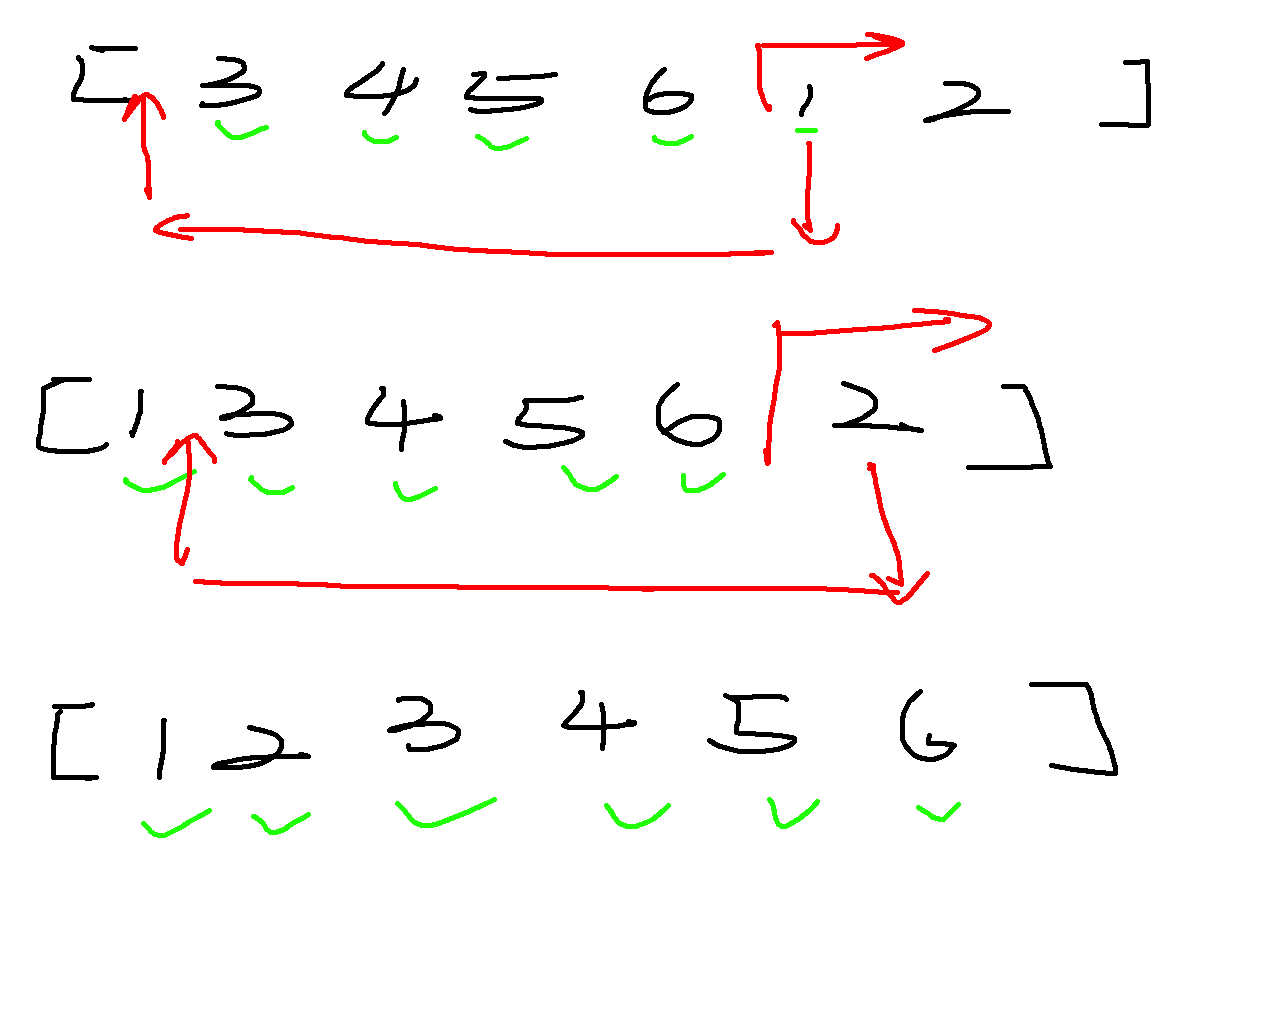 [ 3 4 5 6 1 2 ]
[ 1 3 4 5 6 2 ]
[ 1 2 3 4 5 6 ]